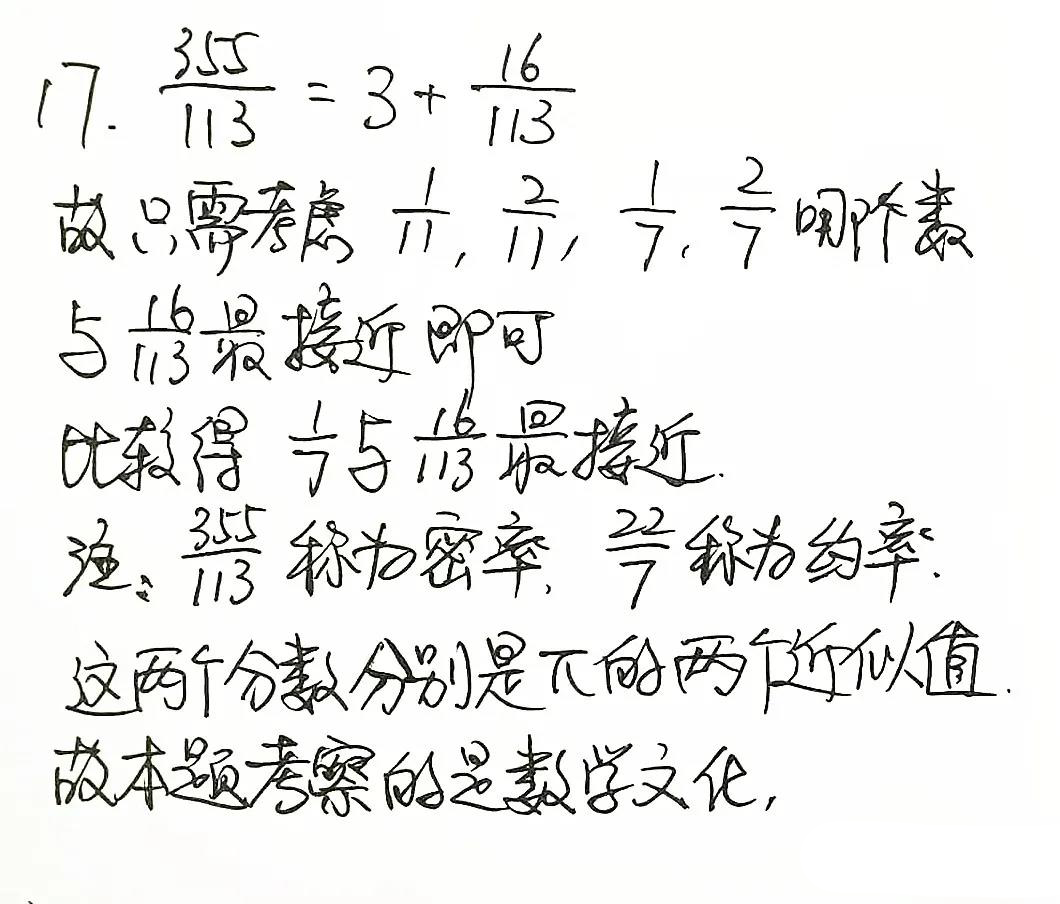 17. 355/113 = 3 + 16/113
故只需考虑 1/11, 2/11, 1/7, 2/7 哪个数
与 16/113 最接近即可
比较得 1/7 与 16/113 最接近.
注: 355/113 称为密率, 22/7 称为约率.
这两个分数分别是π的两个近似值.
故本题考察的是数学文化,